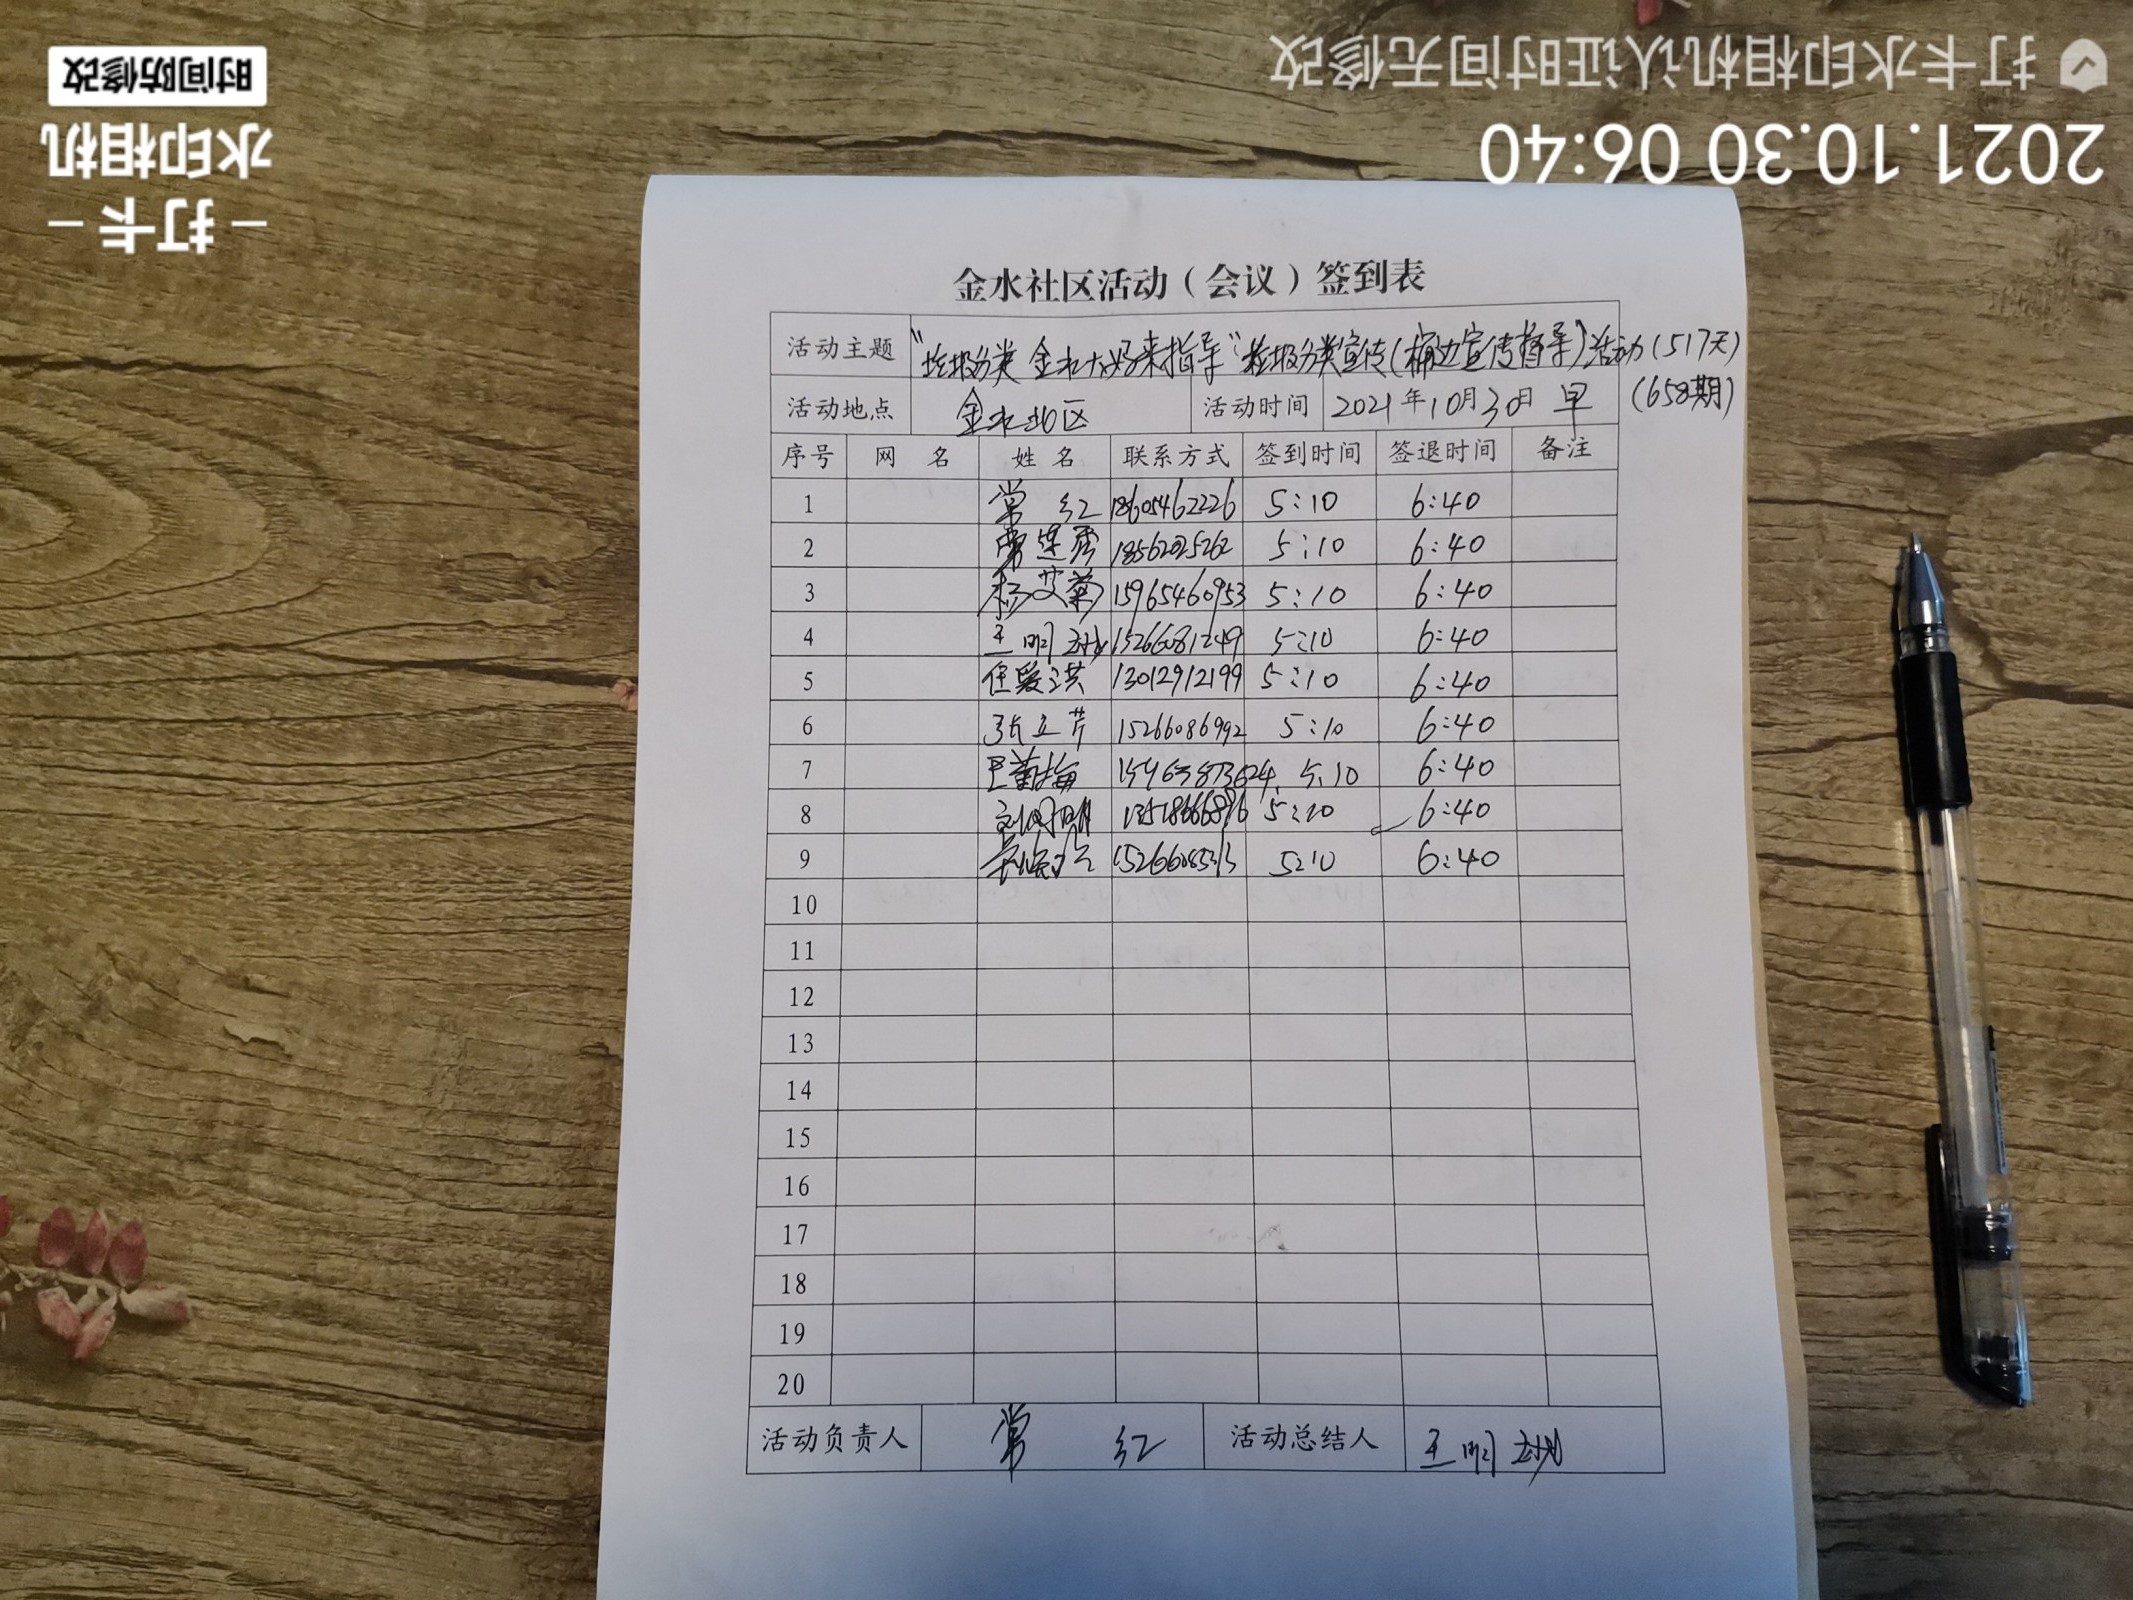 打卡水印相机认证时间无修改
2021.10.30 06:40
时间防修改
水印相机
－打卡－
金水社区活动（会议）签到表
活动主题 "垃圾分类 金水大嫂来指导"垃圾分类宣传(桶边宣传督导)活动(517天)
(658期)
活动地点 金水北区 活动时间 2021年10月30日 早
序号 网 名 姓 名 联系方式 签到时间 签退时间 备注
1 常 红 18605462226 5:10 6:40
2 常连秀 18562025262 5:10 6:40
3 杨艾菊 15965460953 5:10 6:40
4 王明 15266081249 5:10 6:40
5 任爱洪 13012912199 5:10 6:40
6 张立芹 15266086992 5:10 6:40
7 巴菊梅 5:10 6:40
8 5:10 6:40
9 5:10 6:40
10
11
12
13
14
15
16
17
18
19
20
活动负责人 常 红 活动总结人 王明